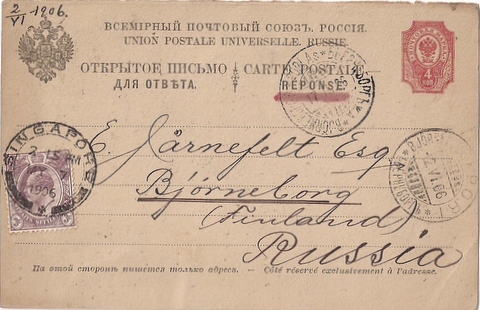 2/VI 1906.
ВСЕМІРНЫЙ ПОЧТОВЫЙ СОЮЗЪ. РОССІЯ.
UNION POSTALE UNIVERSELLE. RUSSIE.
ОТКРЫТОЕ ПИСЬМО CARTE POSTALE
ДЛЯ ОТВѢТА. RÉPONSE.
4
SINGAPORE
PM
1906
E. Järnefelt Esq
Björneborg
(Finland)
Russia
PORI
На этой сторонѣ пишется только адресъ. — Côté réservé exclusivement à l'adresse.